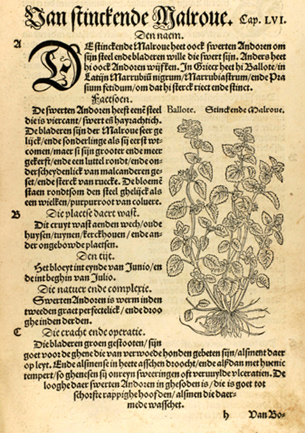 Van stinckende Malroue. Cap. LVI.
Den naem.
A
DE stinckende Malroue heet oock swerten Andoren om
sijn steel ende bladeren wille die swert sijn. Anders heet
hi oock Andoren wijfken. In Griecx heet hi Ballote/ in
Latijn Marrubiū nigrum/ Marrubiastrum/ ende Pra
sium fetidum/ om dat hi sterck riect ende stinct.
Fatsoen.
De swerten Andoren heeft eenē steel
die is viercant/ swert en hayrachtich.
De bladeren sijn der Malroue seer ge
lijck/ ende sonderlinge als sij eerst wt-
comen/ maer si sijn grooter ende meer
gekerft/ ende een luttel rondt/ ende on-
derscheydenlick van malcanderen ge-
set/ ende sterck van ruecke. De bloemē
staen rondtsom den steel ghelijck als
een wielken/ purpurroot van coluere.
Ballote. Stinckende Malroue.
B
Die plaetse daert wast.
Dit cruyt wast aenden wech/ oude
huysen/ tuynen/ kerckhouen/ ende an-
der ongebowde plaetsen.
Den tijt.
Het bloeyt int eynde van Junio/ en
de int beghin van Julio.
Die natuer ende complexie.
Swerten Andoren is werm inden
tweeden graet perfectelick/ ende dro
oghe inden derden.
C
Die cracht ende operatie.
Die bladeren groen gestooten/ sijn
goet voor de ghene die van verwoede honden gebeten sijn/ alsment daer
op leyt. Ende alsmense in heete asschen droocht/ ende dā alsdan met huenic
tempert/ so ghenesen sij onreyn sweeringen oft veruuylde vlceratien. De
looghe daer swerten Andoren in ghesoden is/ die is goet tot
schorfte rappighe hoofden/ alsmen die daer
mede wasschet.
h Van Bo-